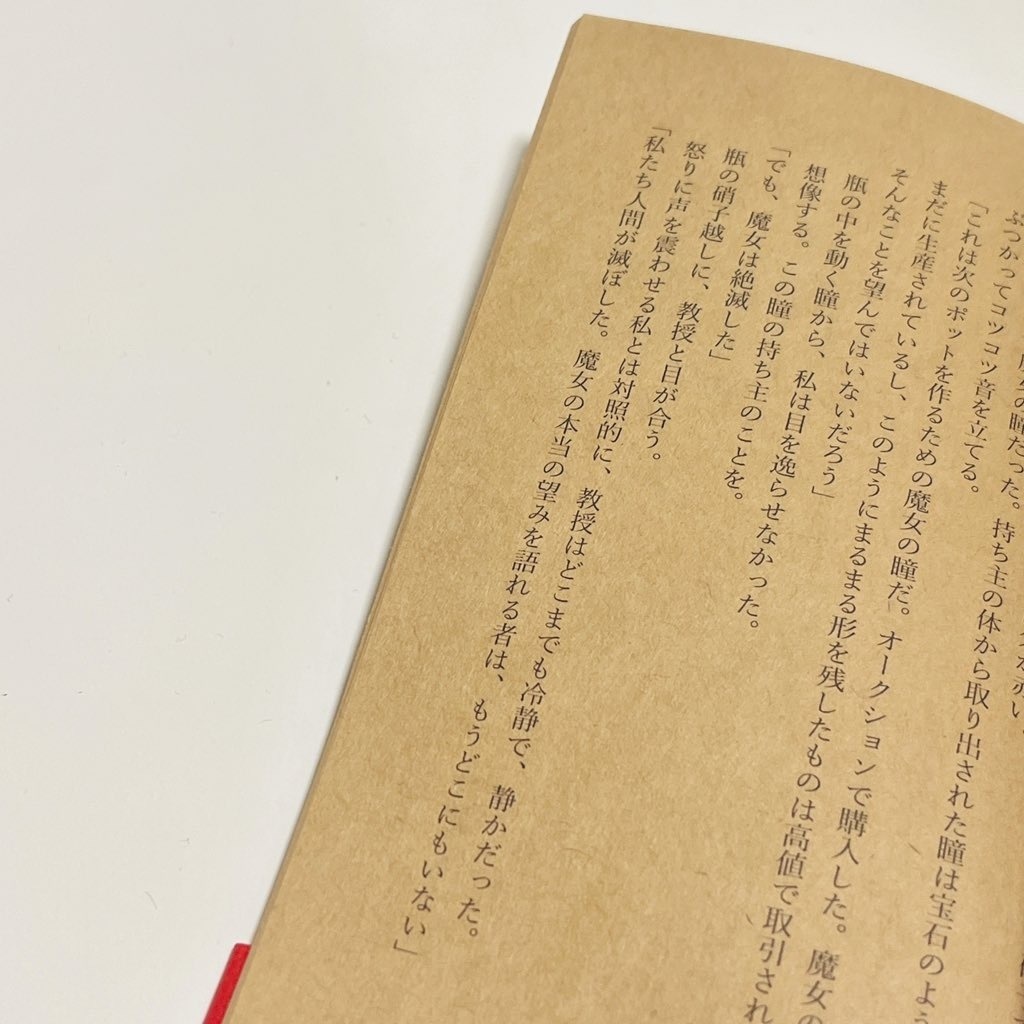 な赤い、
魔女の瞳だった。持ち主の体から取り出された瞳は宝石のよう
ぶつかってコツコツ音を立てる。
「これは次のポットを作るための魔女の瞳だ。オークションで購入した。魔女の
まだに生産されているし、このようにまるまる形を残したものは高値で取引され
そんなことを望んではいないだろう」
瓶の中を動く瞳から、私は目を逸らせなかった。
想像する。この瞳の持ち主のことを。
「でも、魔女は絶滅した」
瓶の硝子越しに、教授と目が合う。
怒りに声を震わせる私とは対照的に、教授はどこまでも冷静で、静かだった。
「私たち人間が滅ぼした。魔女の本当の望みを語れる者は、もうどこにもいない」